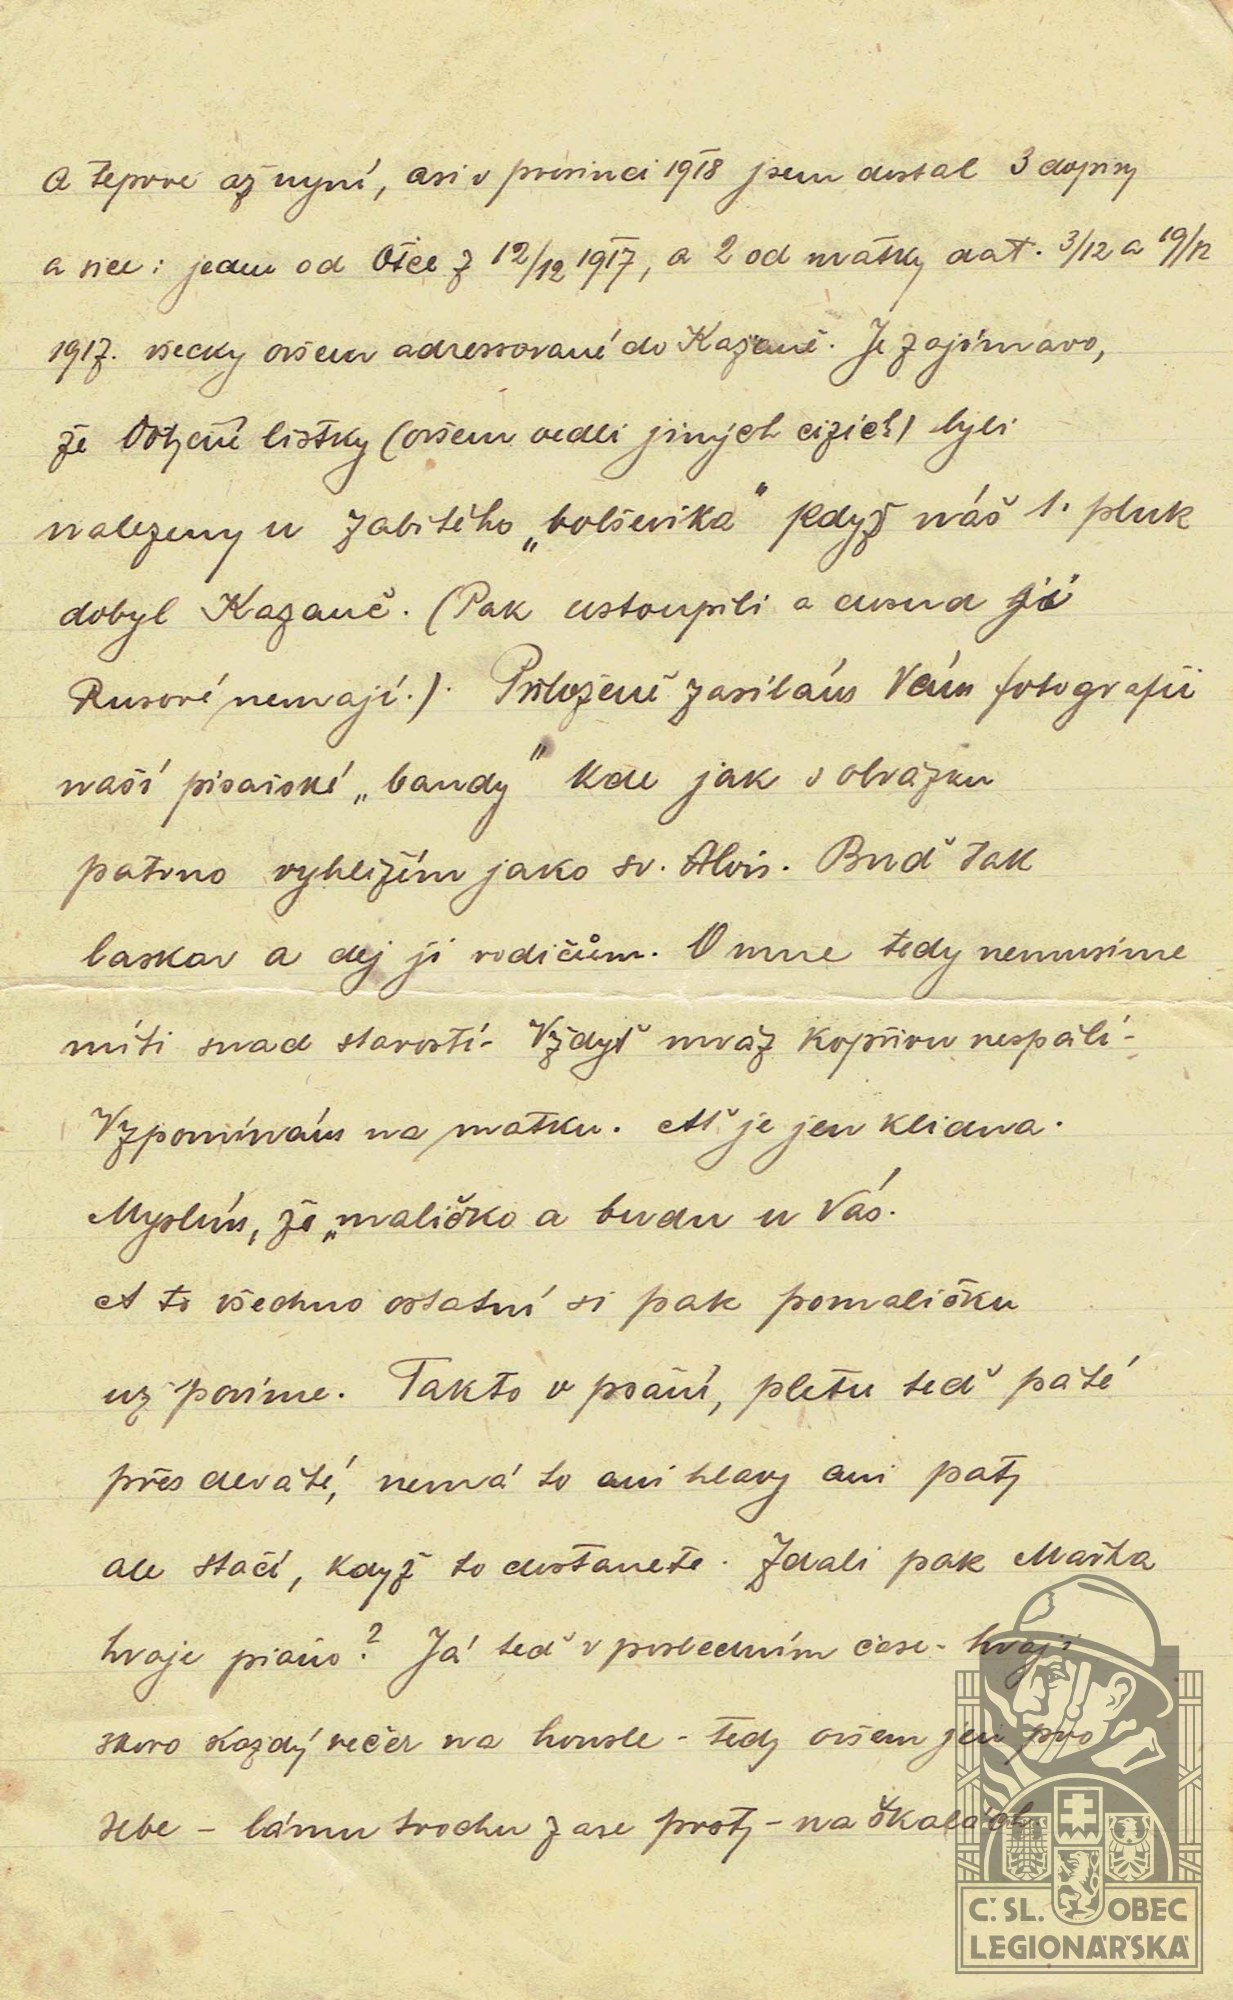 A teprve až nyní, asi v prosinci 1918 jsem dostal 3 dopisy
a sice: jeden od Otce z 12/12 1917, a 2 od matky dat. 3/12 a 19/12
1917. všecky ovšem adressované do Kazaně. Je zajímavo,
že lístky (ovšem vedle jiných cizích) byli
nalezeny u zabitého „bolševika" když náš 1. pluk
dobyl Kazaně. (Pak ustoupili a dosud ji
Rusové nemají.). Přiloženě zasílám Vám fotografii
naší písařské „bandy" kde jak v obrázku
patrno vyhlížím jako sv. Alois. Buď tak
laskav a dej ji rodičům. O mne tedy nemusíme
míti snad starostí - Vždyť mráz kopřivu nespálí -
Vzpomínám na matku. Ať je jen klidna.
Myslím, že „maličko a budu u Vás.
A to všechno ostatní si pak pomaličku
už povíme. Takto v psaní, pletu teď páté
přes deváté, nemá to ani hlavy ani paty
ale stačí, když to dostanete. Zdali pak Mařka
hraje piano? Já teď v posledním čase - hraji
skoro každý večer na housle - tedy ovšem jen pro
sebe - lámu trochu zase prsty - na škalách
Č.SL. OBEC
LEGIONÁŘSKÁ